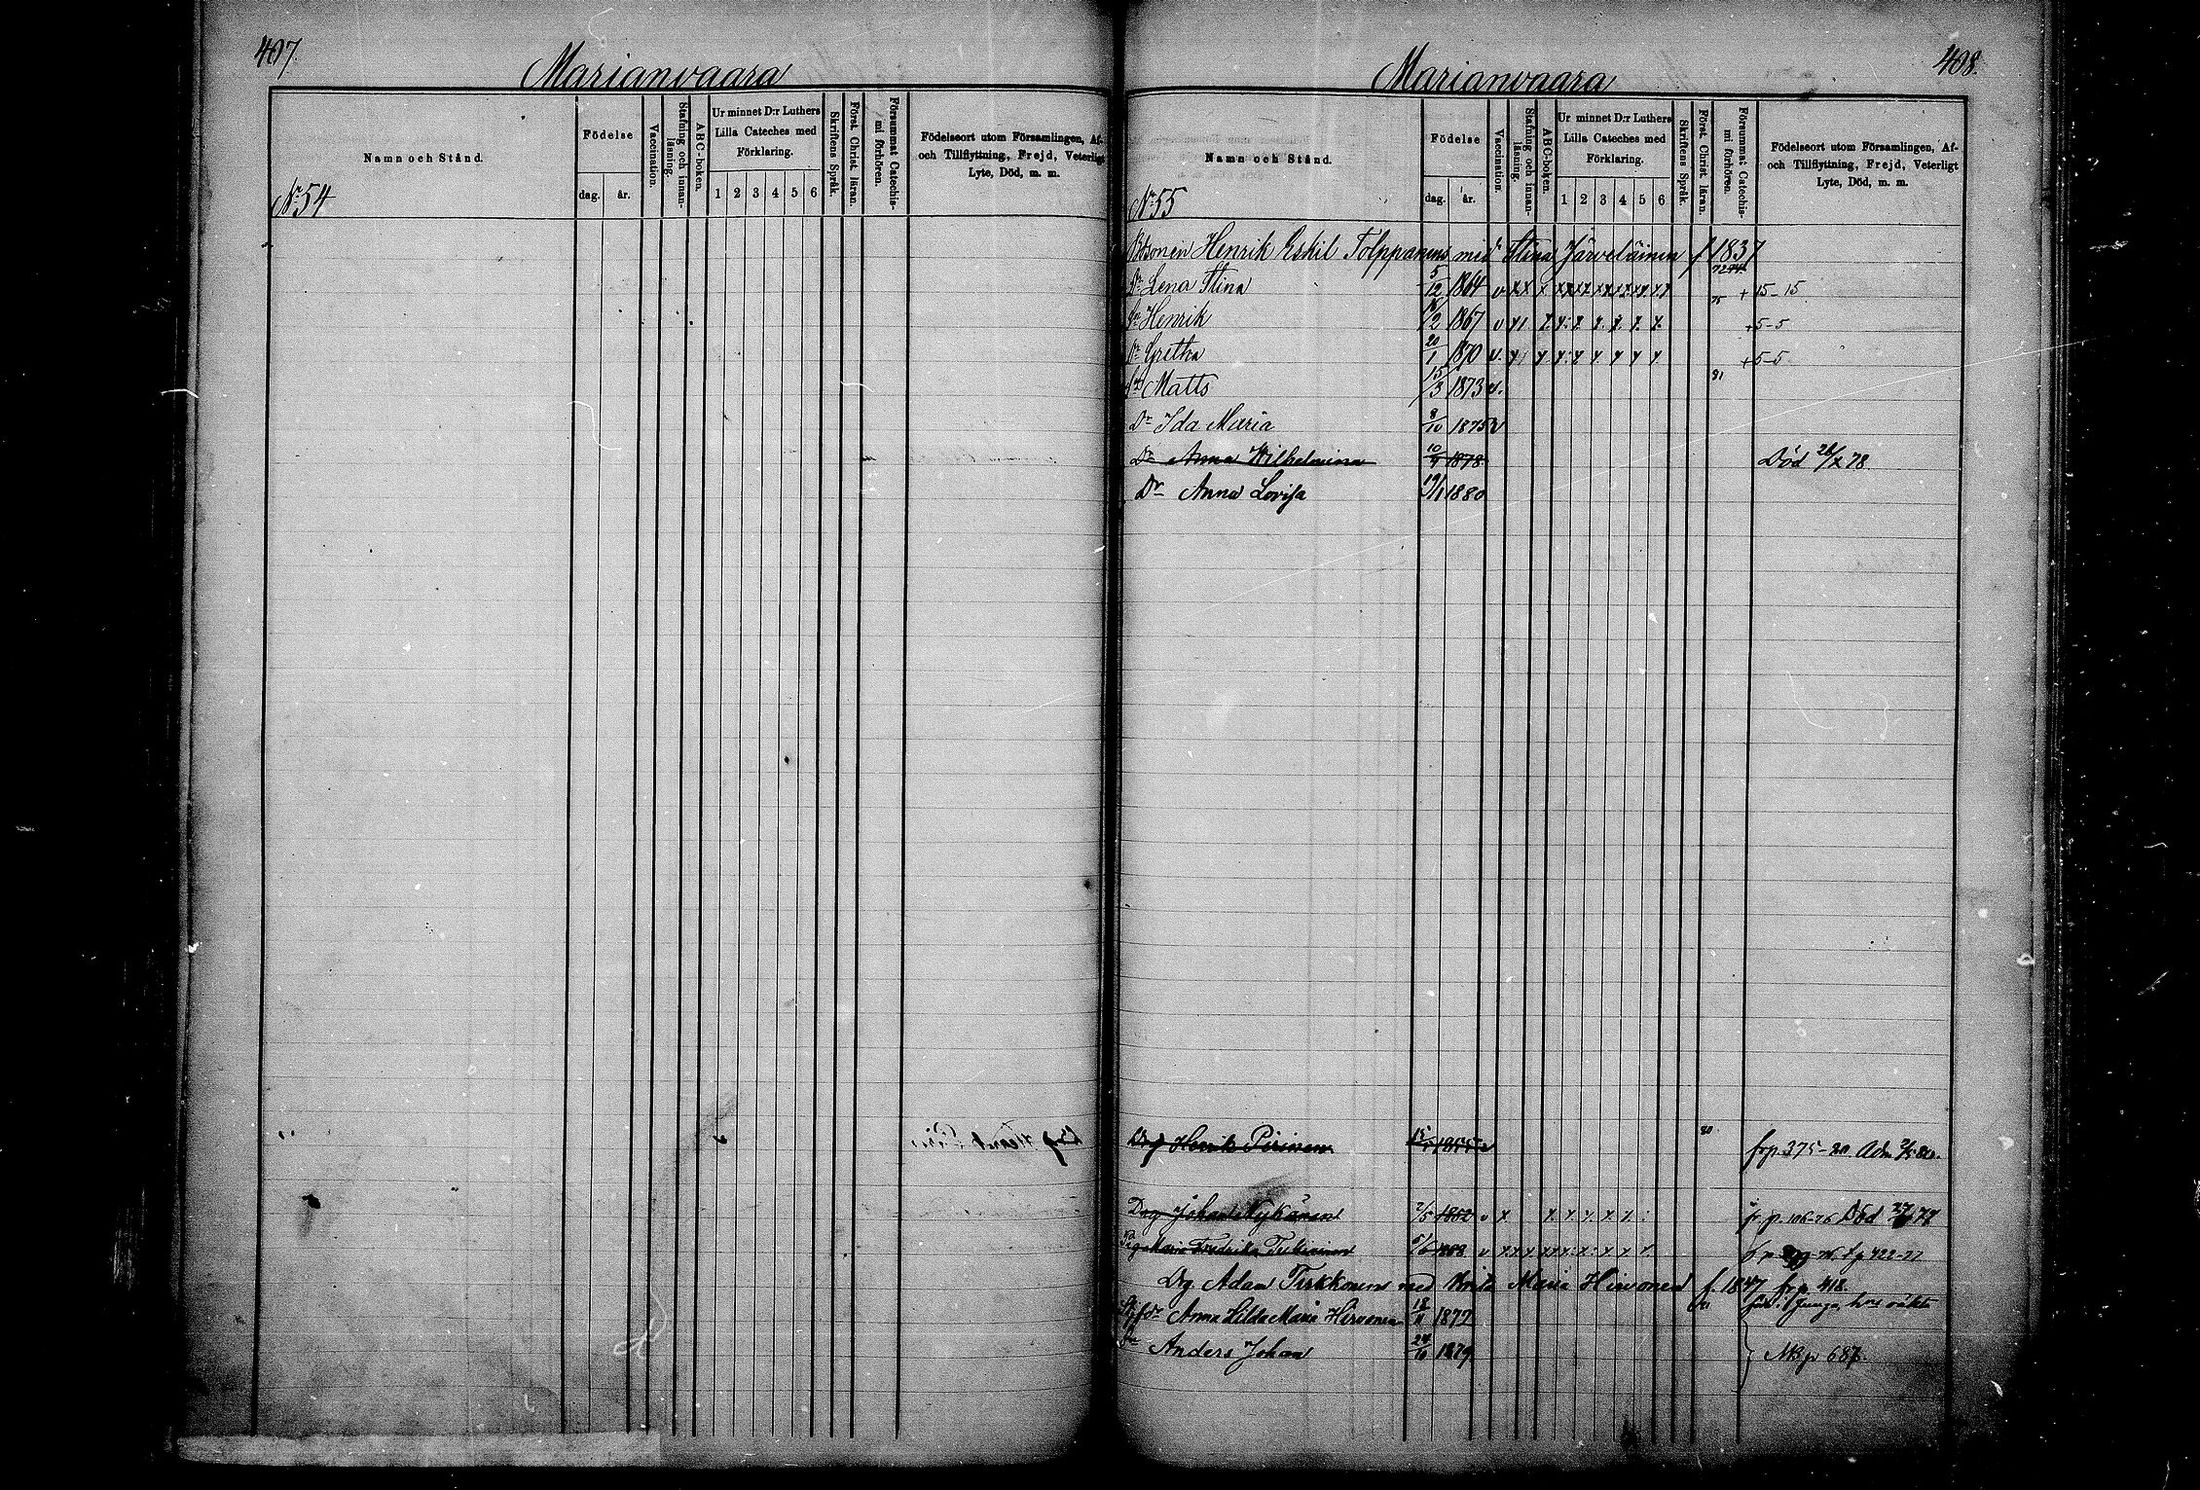 407.
Marianvaara
Namn och Stånd.
Födelse
dag. år.
Vaccination.
Stafning och innanläsning.
ABC-boken.
Ur minnet D:r Luthers Lilla Cateches med Förklaring.
1 2 3 4 5 6
Skriftens Språk.
Först. Christ. läran.
Försummat Catechismi förhören.
Födelseort utom Församlingen, Af- och Tillflyttning, Frejd, Veterligt Lyte, Död, m. m.
No 54
408.
Marianvaara
Namn och Stånd.
Födelse
dag. år.
Vaccination.
Stafning och innanläsning.
ABC-boken.
Ur minnet D:r Luthers Lilla Cateches med Förklaring.
1 2 3 4 5 6
Skriftens Språk.
Först. Christ. läran.
Försummat Catechismi förhören.
Födelseort utom Församlingen, Af- och Tillflyttning, Frejd, Veterligt Lyte, Död, m. m.
No 55
Henrik Eskil Tolppanens med Stina Järveläinen f 1837
Dr Lena Stina 5/12 1864 v 75 + 15-15
Sn Henrik /2 1867 v +5-5
Dr Gretha 20/1 1870 v. +5-5
Sn Matts 15/3 1873 v. 81
Dr Ida Maria 8/10 1875 v
Dr Anna Wilhelmina 10/ 1878 Död 28/X 78
Dr Anna Lovisa 19/1 1880
Drg Henrik Piirinen 1855 v 80 frp. 375-80.
Drg Johan Nykänen 2/5 1852 v x fr p. 106-76 Död 77
Pig Maria Fredrika 5/6 1858 v t p 422-77
Drg Adam Tirkkonen med Brita Maria Hirvonen f. 1847 frp. 418.
dr Anna Hilda Maria Hirvonen 18/11 1877
Sn Anders Johan 24/10 1879 NB p 687.